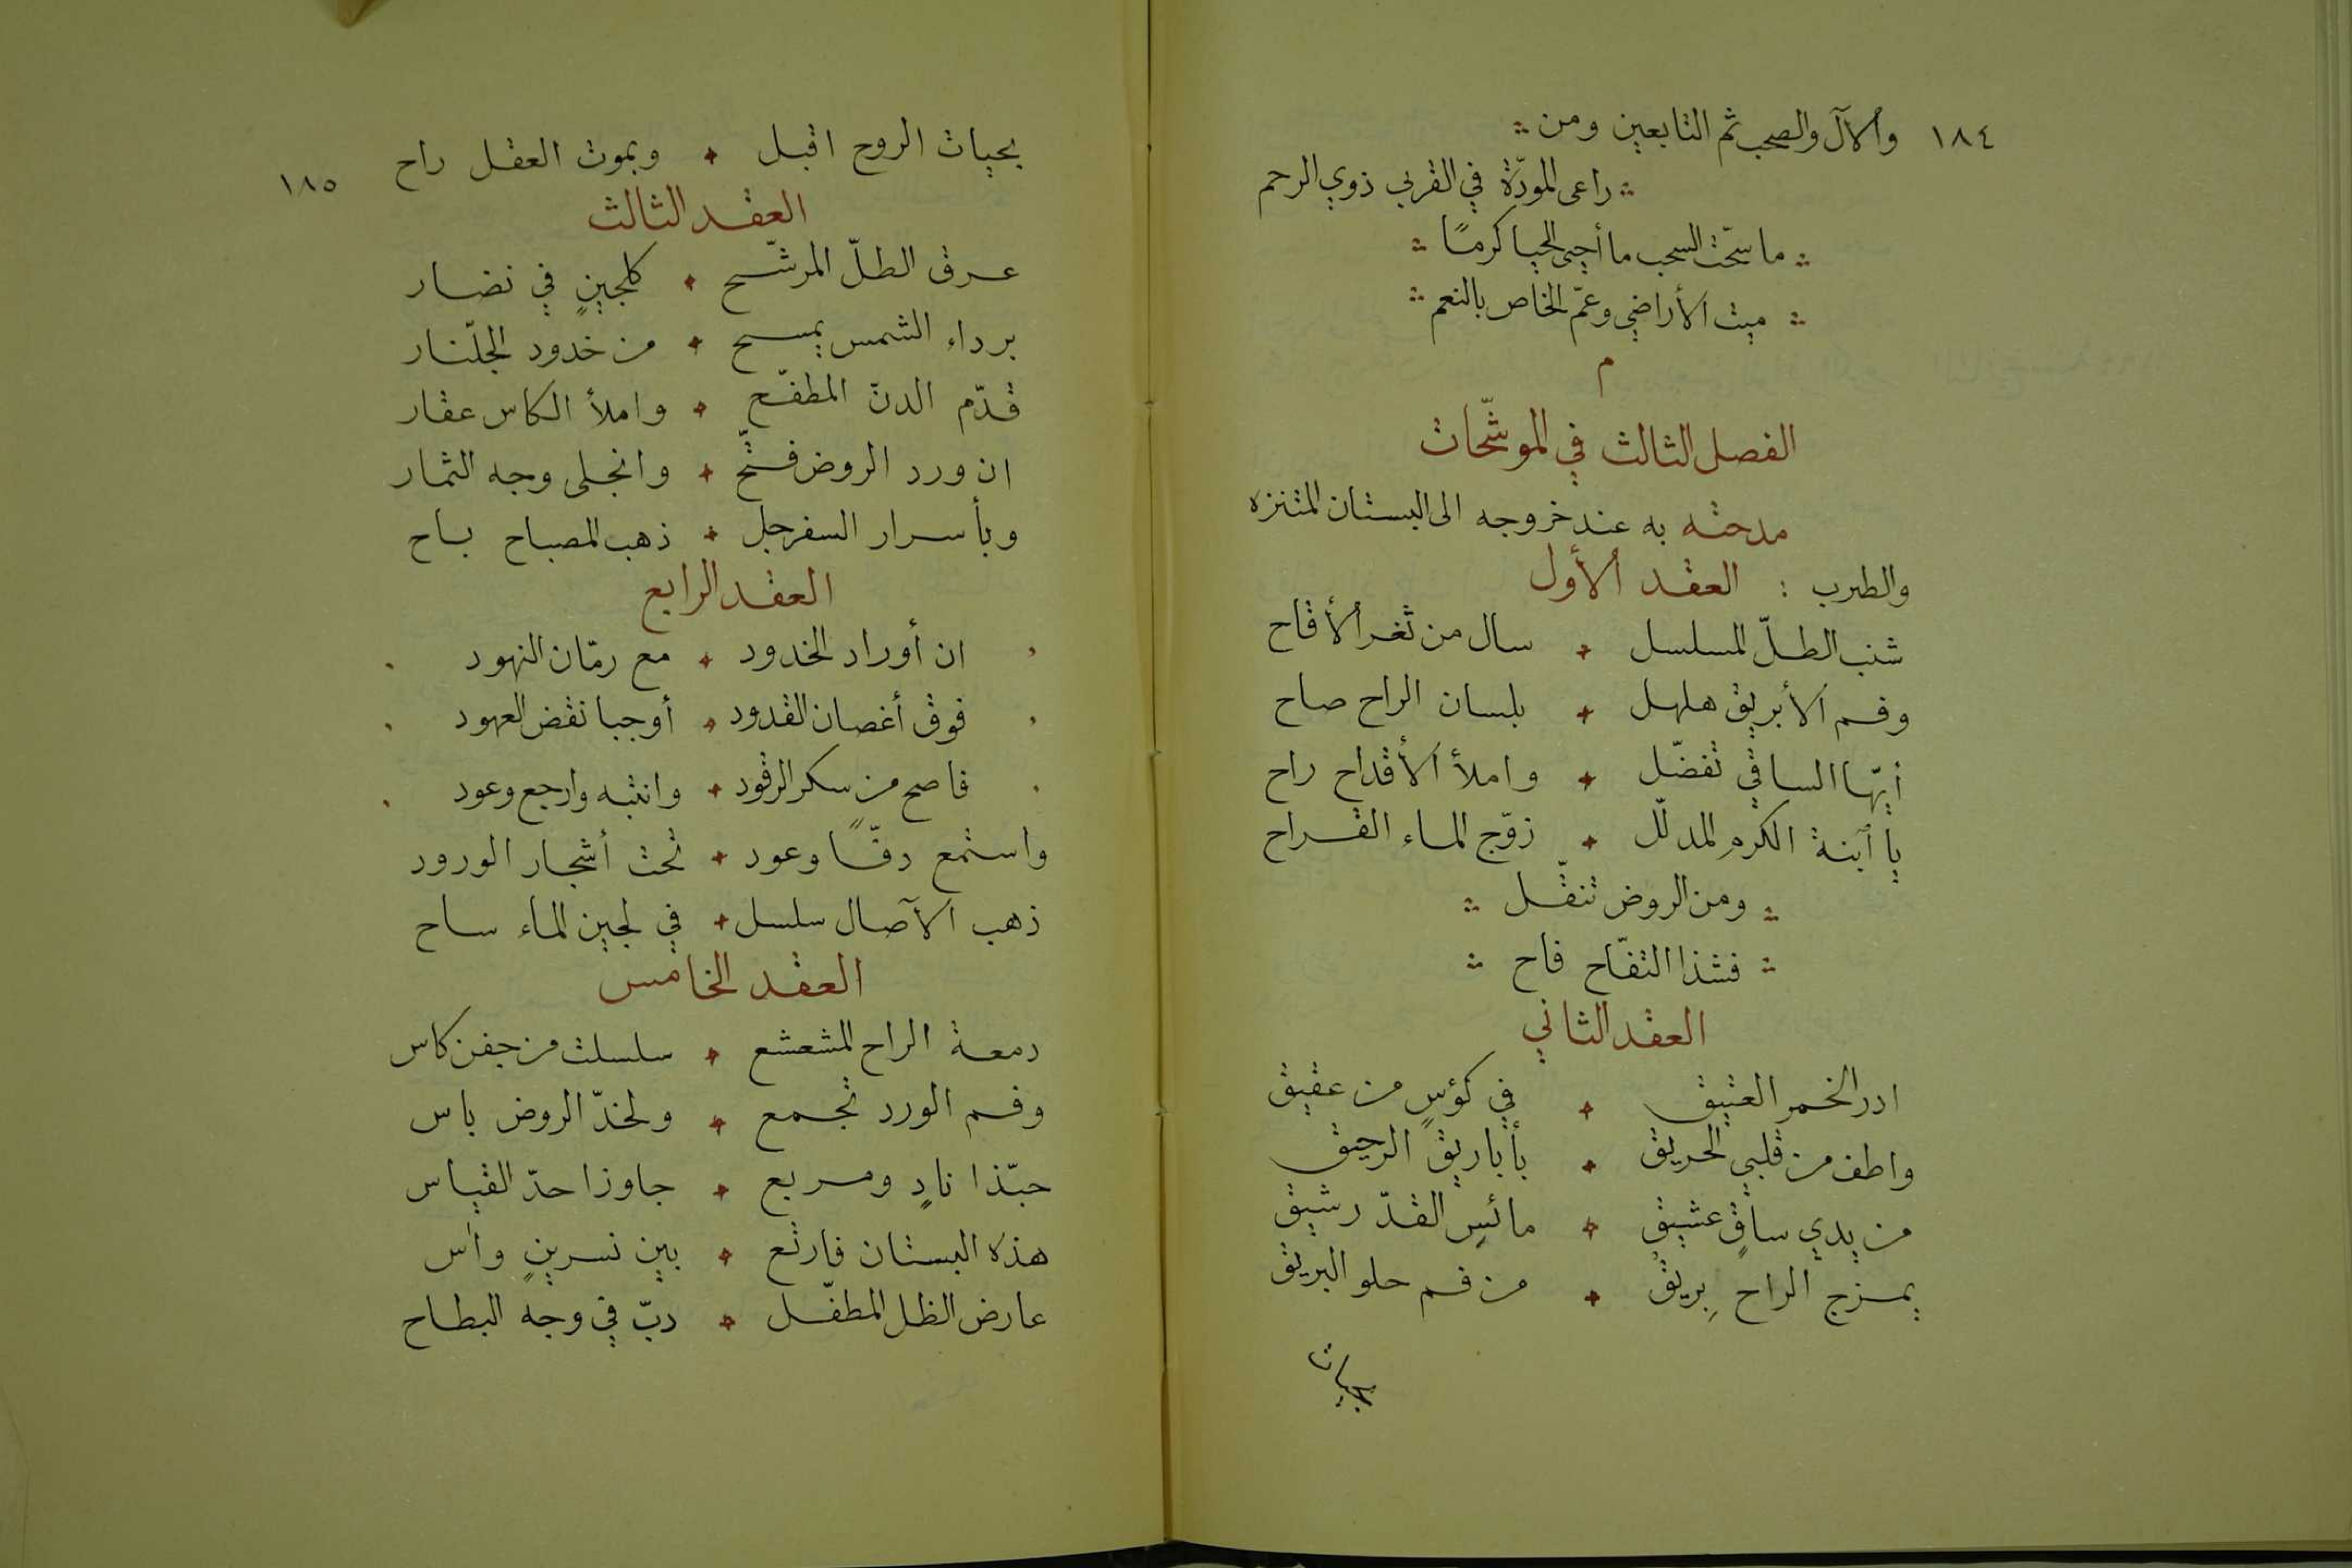 ١٨٤ والآل والصحب ثم التابعين ومن
راعى المودّة في القربى ذوي الرحم
ما سحّت السحب ما أحيى الحيا كرمًا
ميت الأراضي وعمّ الخاص بالنعم
م
الفصل الثالث في الموشّحات
مدحته به عند خروجه الى البستان المتنزه
والطرب : العقد الأول
شنب الطلّ المسلسل + سال من ثغر الأقاح
وفم الأبريق هلهل + بلسان الراح صاح
أيّها الساقي تفضّل + واملأ الأقداح راح
يا آبنة الكرم المدلّل + زوّج الماء القراح
ومن الروض تنقّل
فشذا التفّاح فاح
العقد الثاني
ادر الخمر العتيق + في كؤسٍ من عقيق
واطف من قلبي الحريق + بأباريق الرحيق
من يدي ساقٍ عشيق + مائس القدّ رشيق
يمزج الراح بِريق + من فم حلو البريق
بحيات
بحيات الروح اقبل + وبموت العقل راح
١٨٥
العقد الثالث
عرق الطلّ المرشّح + كلجينٍ في نضار
برداء الشمس يمسح + من خدود الجلّنار
قدّم الدنّ المطفّح + واملأ الكاس عقار
ان ورد الروض فتّح + وانجلى وجه الثمار
وبأسرار السفرجل + ذهب المصباح باح
العقد الرابع
ان أوراد الخدود + مع رمّان النهود
فوق أغصان القدود + أوجبا نقض العهود
فاصح من سكر الرقود + وانتبه وارجع وعود
واستمع دفّاً وعود + تحت أشجار الورود
ذهب الآصال سلسل + في لجين الماء ساح
العقد الخامس
دمعة الراح المشعشع + سلسلت من جفن كاس
وفم الورد تجمع + ولخدّ الروض باس
حبّذا نادٍ ومربع + جاوزا حدّ القياس
هذه البستان فارتع + بين نسرينٍ وآس
عارض الظل المطفّل + دبّ في وجه البطاح